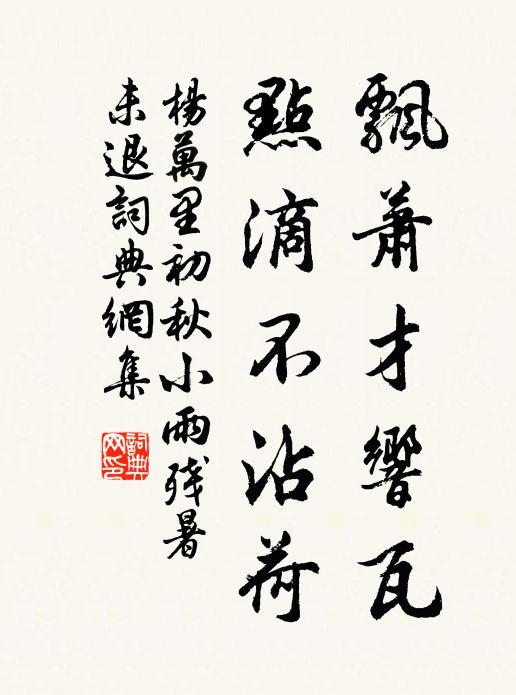 飄蕭才響瓦
點滴不沾荷
楊萬里初秋小雨残暑
未退詞典網集
詞典网印